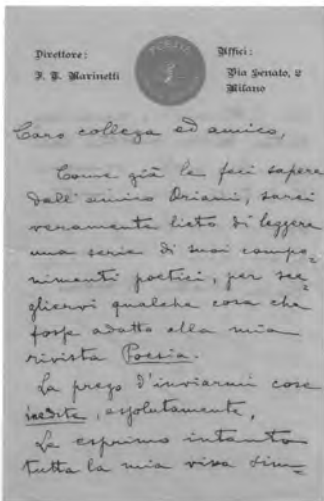 Direttore:
F. T. Marinetti
POESIA
Uffici:
Via Senato, 2
Milano
Caro collega ed amico,
Come già le feci sapere
dall'amico Oriani, sarei
veramente lieto di leggere
una serie di suoi compo=
nimenti poetici, per sce=
gliervi qualche cosa che
fosse adatto alla mia
rivista Poesia.
La prego d'inviarmi cose
inedite, assolutamente.
Le esprimo intanto
tutta la mia viva sim=